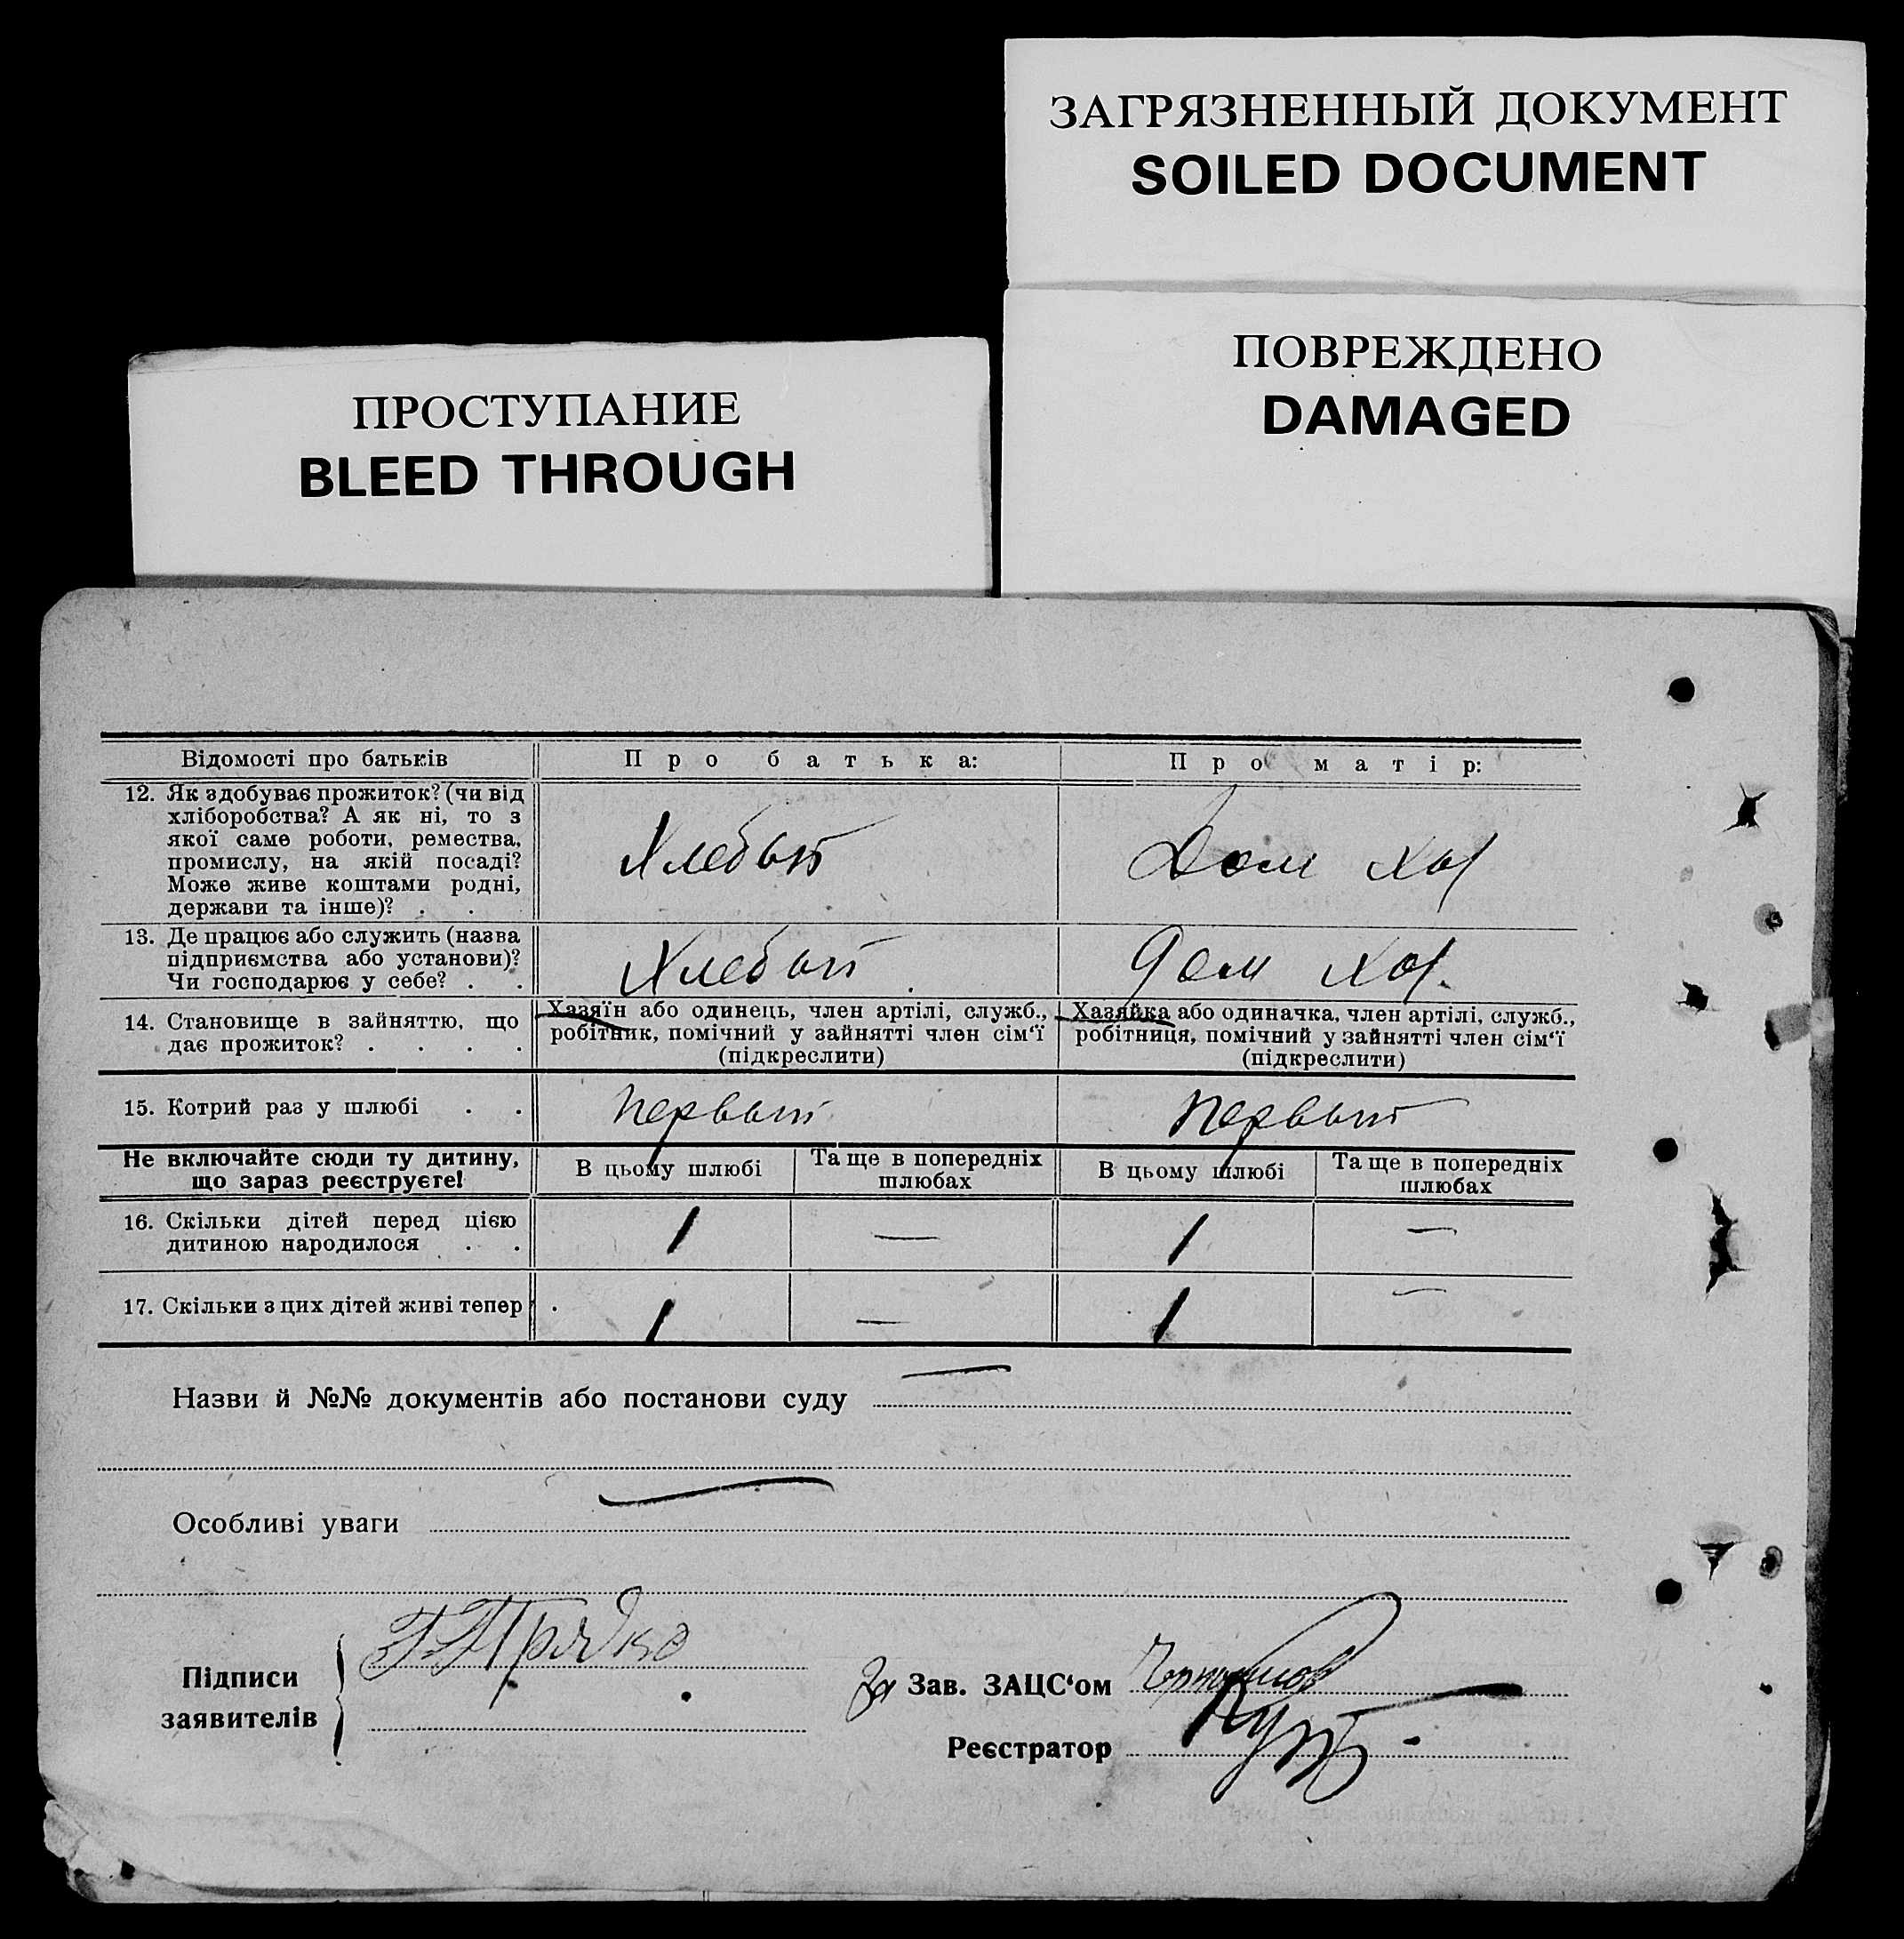 ЗАГРЯЗНЕННЫЙ ДОКУМЕНТ
SOILED DOCUMENT
ПОВРЕЖДЕНО
DAMAGED
ПРОСТУПАНИЕ
BLEED THROUGH
Відомості про батьків
Про батька:
Про матір:
12. Як здобуває прожиток? (чи від
хліборобства? А як ні, то з
якої саме роботи, ремества,
промислу, на якій посаді?
Може живе коштами родні,
держави та інше)? . .
Дом хоз
13. Де працює або служить (назва
підприємства або установи)?
Чи господарює у себе? . .
Дом хоз.
14. Становище в зайняттю, що
дає прожиток? . . . .
Хазяїн або одинець, член артілі, служб.,
робітник, помічний у зайнятті член сім‘ї
(підкреслити)
Хазяйка або одиначка, член артілі, служб.,
робітниця, помічний у зайнятті член сім‘ї
(підкреслити)
15. Котрий раз у шлюбі . .
первый
первый
Не включайте сюди ту дитину,
що зараз реєструєте!
В цьому шлюбі
Та ще в попередніх
шлюбах
В цьому шлюбі
Та ще в попередніх
шлюбах
16. Скільки дітей перед цією
дитиною народилося . .
1 — 1 —
17. Скільки з цих дітей живі тепер .
1 — 1 —
Назви й №№ документів або постанови суду —
Особливі уваги —
Підписи
заявителів
Г. Прядко
За Зав. ЗАЦС‘ом
Реєстратор